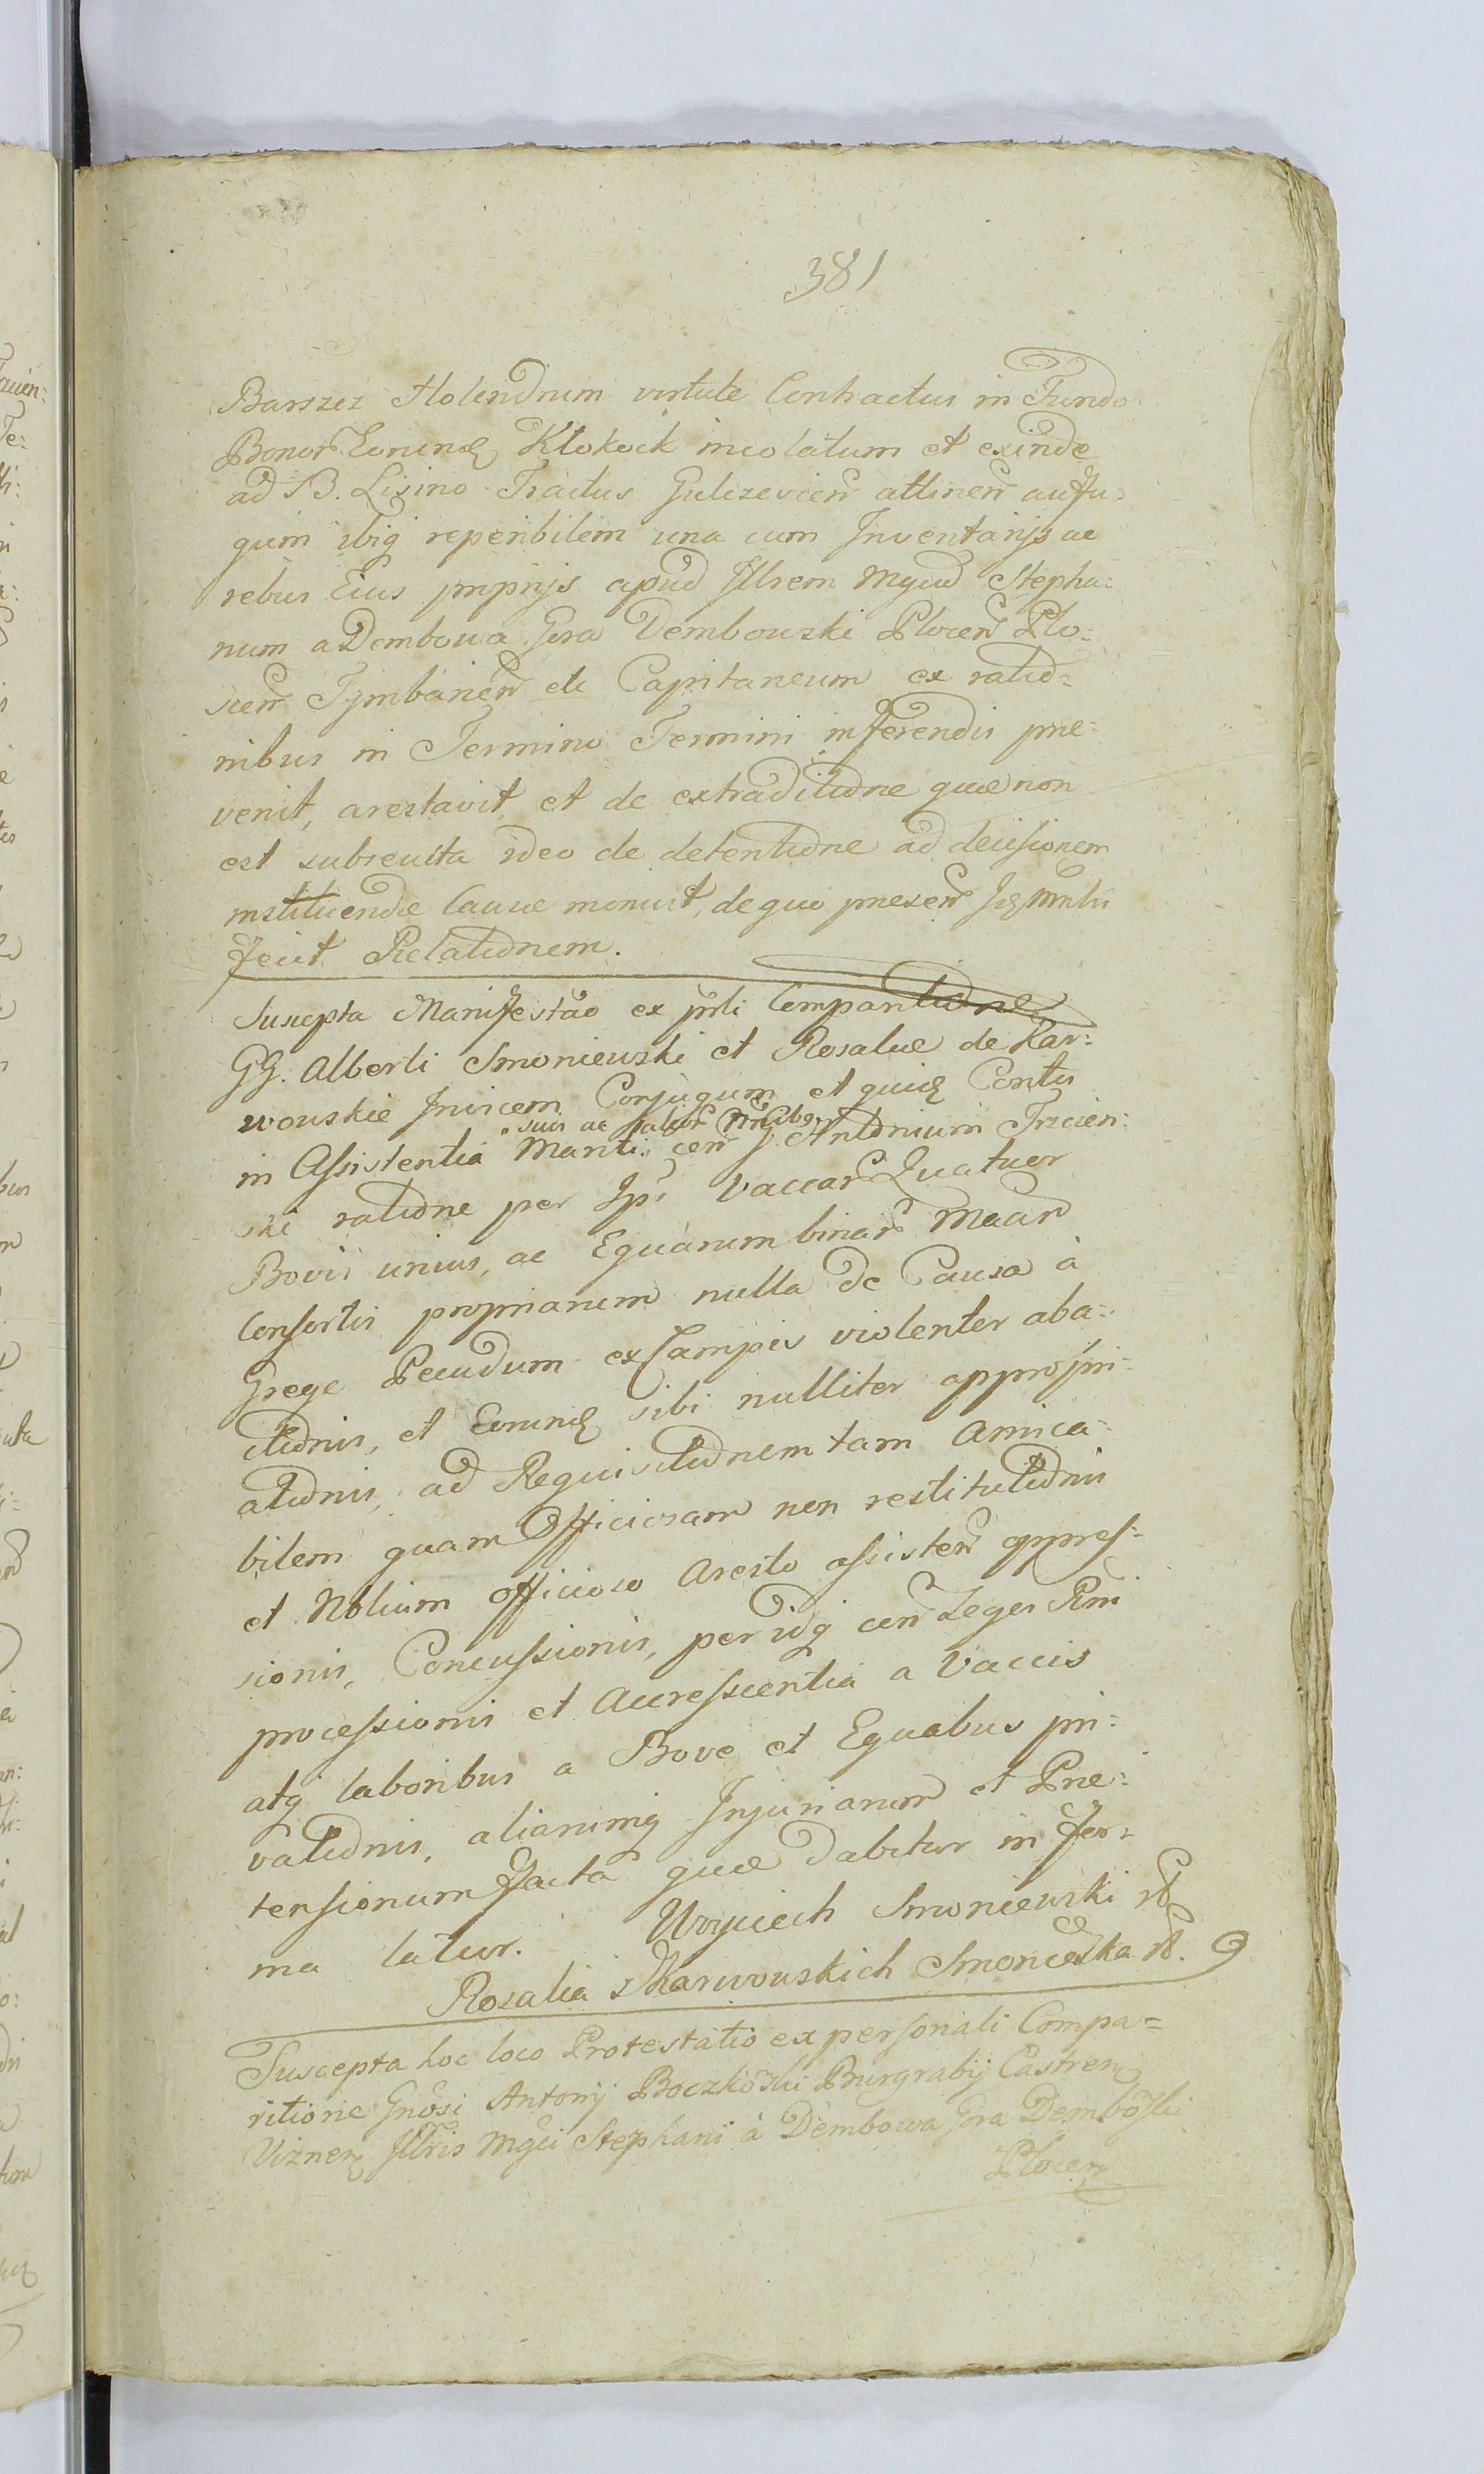 381
Barszcz Holendrum virtute Contractus in Fundo
Bonor Eorund Kłokock incolatum et exinde
ad B. Lisino Tractus Gulczevien attinen aufu=
gum ibiq reperibilem una cum Inventarijs ac
rebus Eius proprijs apud Illrem Mgcud Stepha=
num a Dembowa Gora Dembowski Plocen Plo=
cen Tymbarien etc Capitaneum ex ratio=
nibus in Termino Termini inferendis prae=
venit, arestavit et de extraditione quae non
est subsecuta ideo de detentione ad decisionem
instituendae Causae monuit, de quo praesen
fecit Relationem.
Suscepta Manifestao ex prli Comparitione
GG. Alberti Smoniewski et Rosaliae de Kar=
wowskie Invicem Conjugum et quid Contis
in Assistentia Mariti cen G. Antonium Trzcien:
suis ac
ski ratione per Ips Vaccar Quatuor
Bovis unius, ac Equarum binar Maan
Consortis propriarum nulla de Causa à
Grege Pecudum ex Campis violenter aba=
ctionis, et Eorund sibi nulliter appropri=
ationis, ad Requisitionem tam amica=
bilem quam Officiosam non restitutionis
et Nolium officioso Aresto assisten oppres=
sionis, Concussionis, per idq cen Leges Rni
processionis et Accrescentia a Vaccis
atq laboribus a Bove et Equabus pri=
vationis, aliarumq Injuriarum et Prae=
tensionum facta quae dabitur in for=
ma latior. Woyciech Smoniewski
Rozalia z Karwowskich Smonieska
Suscepta hoc loco Protestatio ex personali Compa=
ritione Gnosi Antonij Boczkoski Burgrabij Castren
Viznen Illris Mgci Stephani à Dembowa Gora Demboski
Plocen